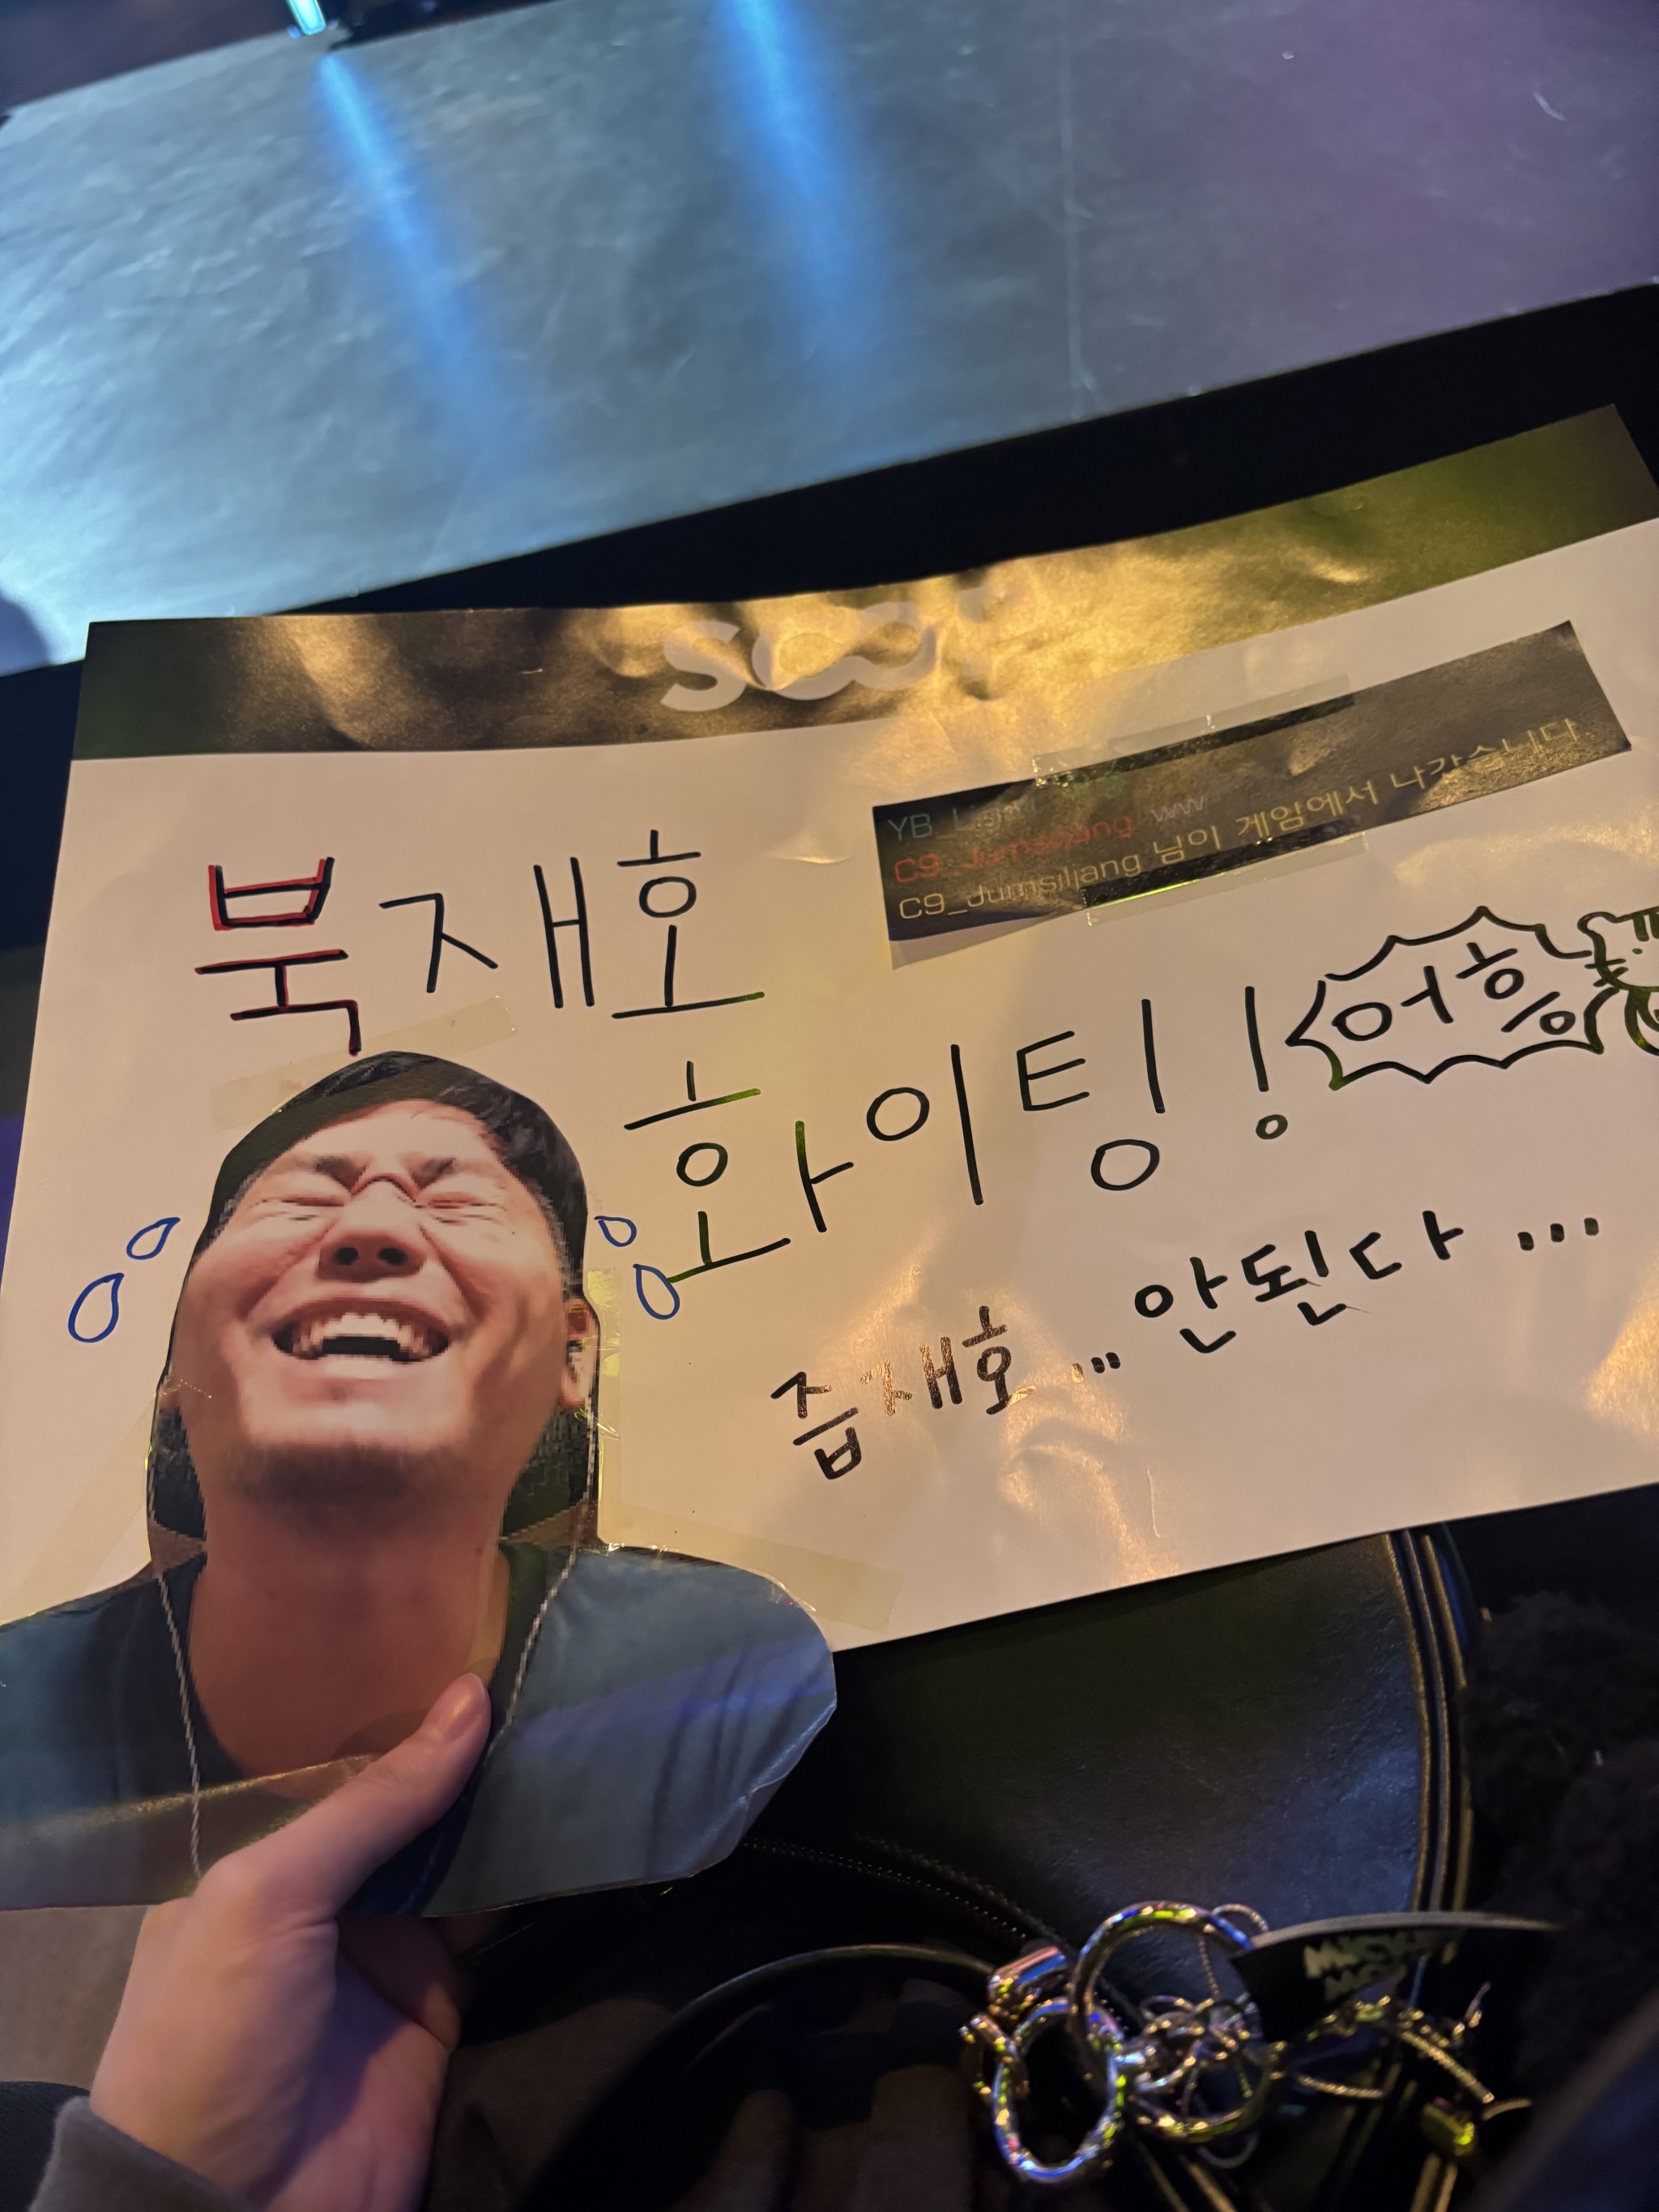 SOOP
YB_Light
C9_Jumsiljang ww
C9_Jumsiljang 님이 게임에서 나갔습니다
북재호
화이팅!
어흥
즙재호... 안된다...
MICKEY